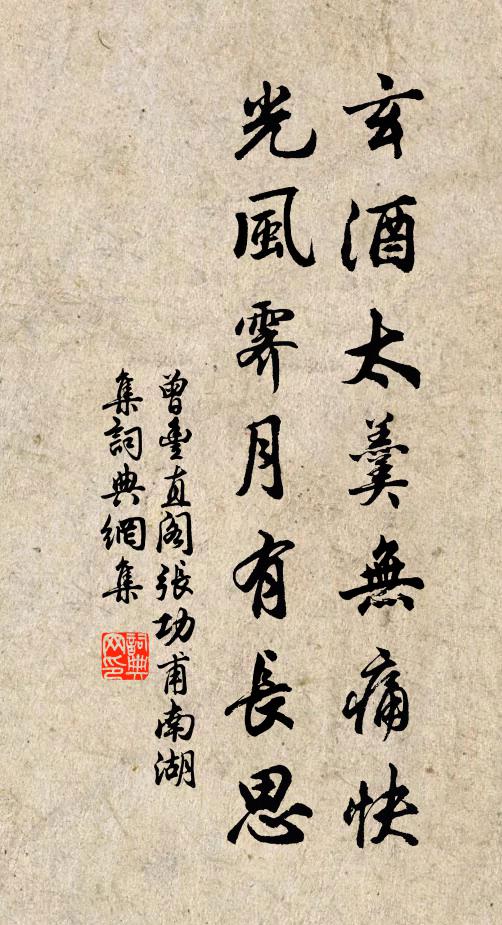 玄酒太羹無痛快
光風霽月有長思
曾豐直閣張功甫南湖
集詞典網集
詞典網印